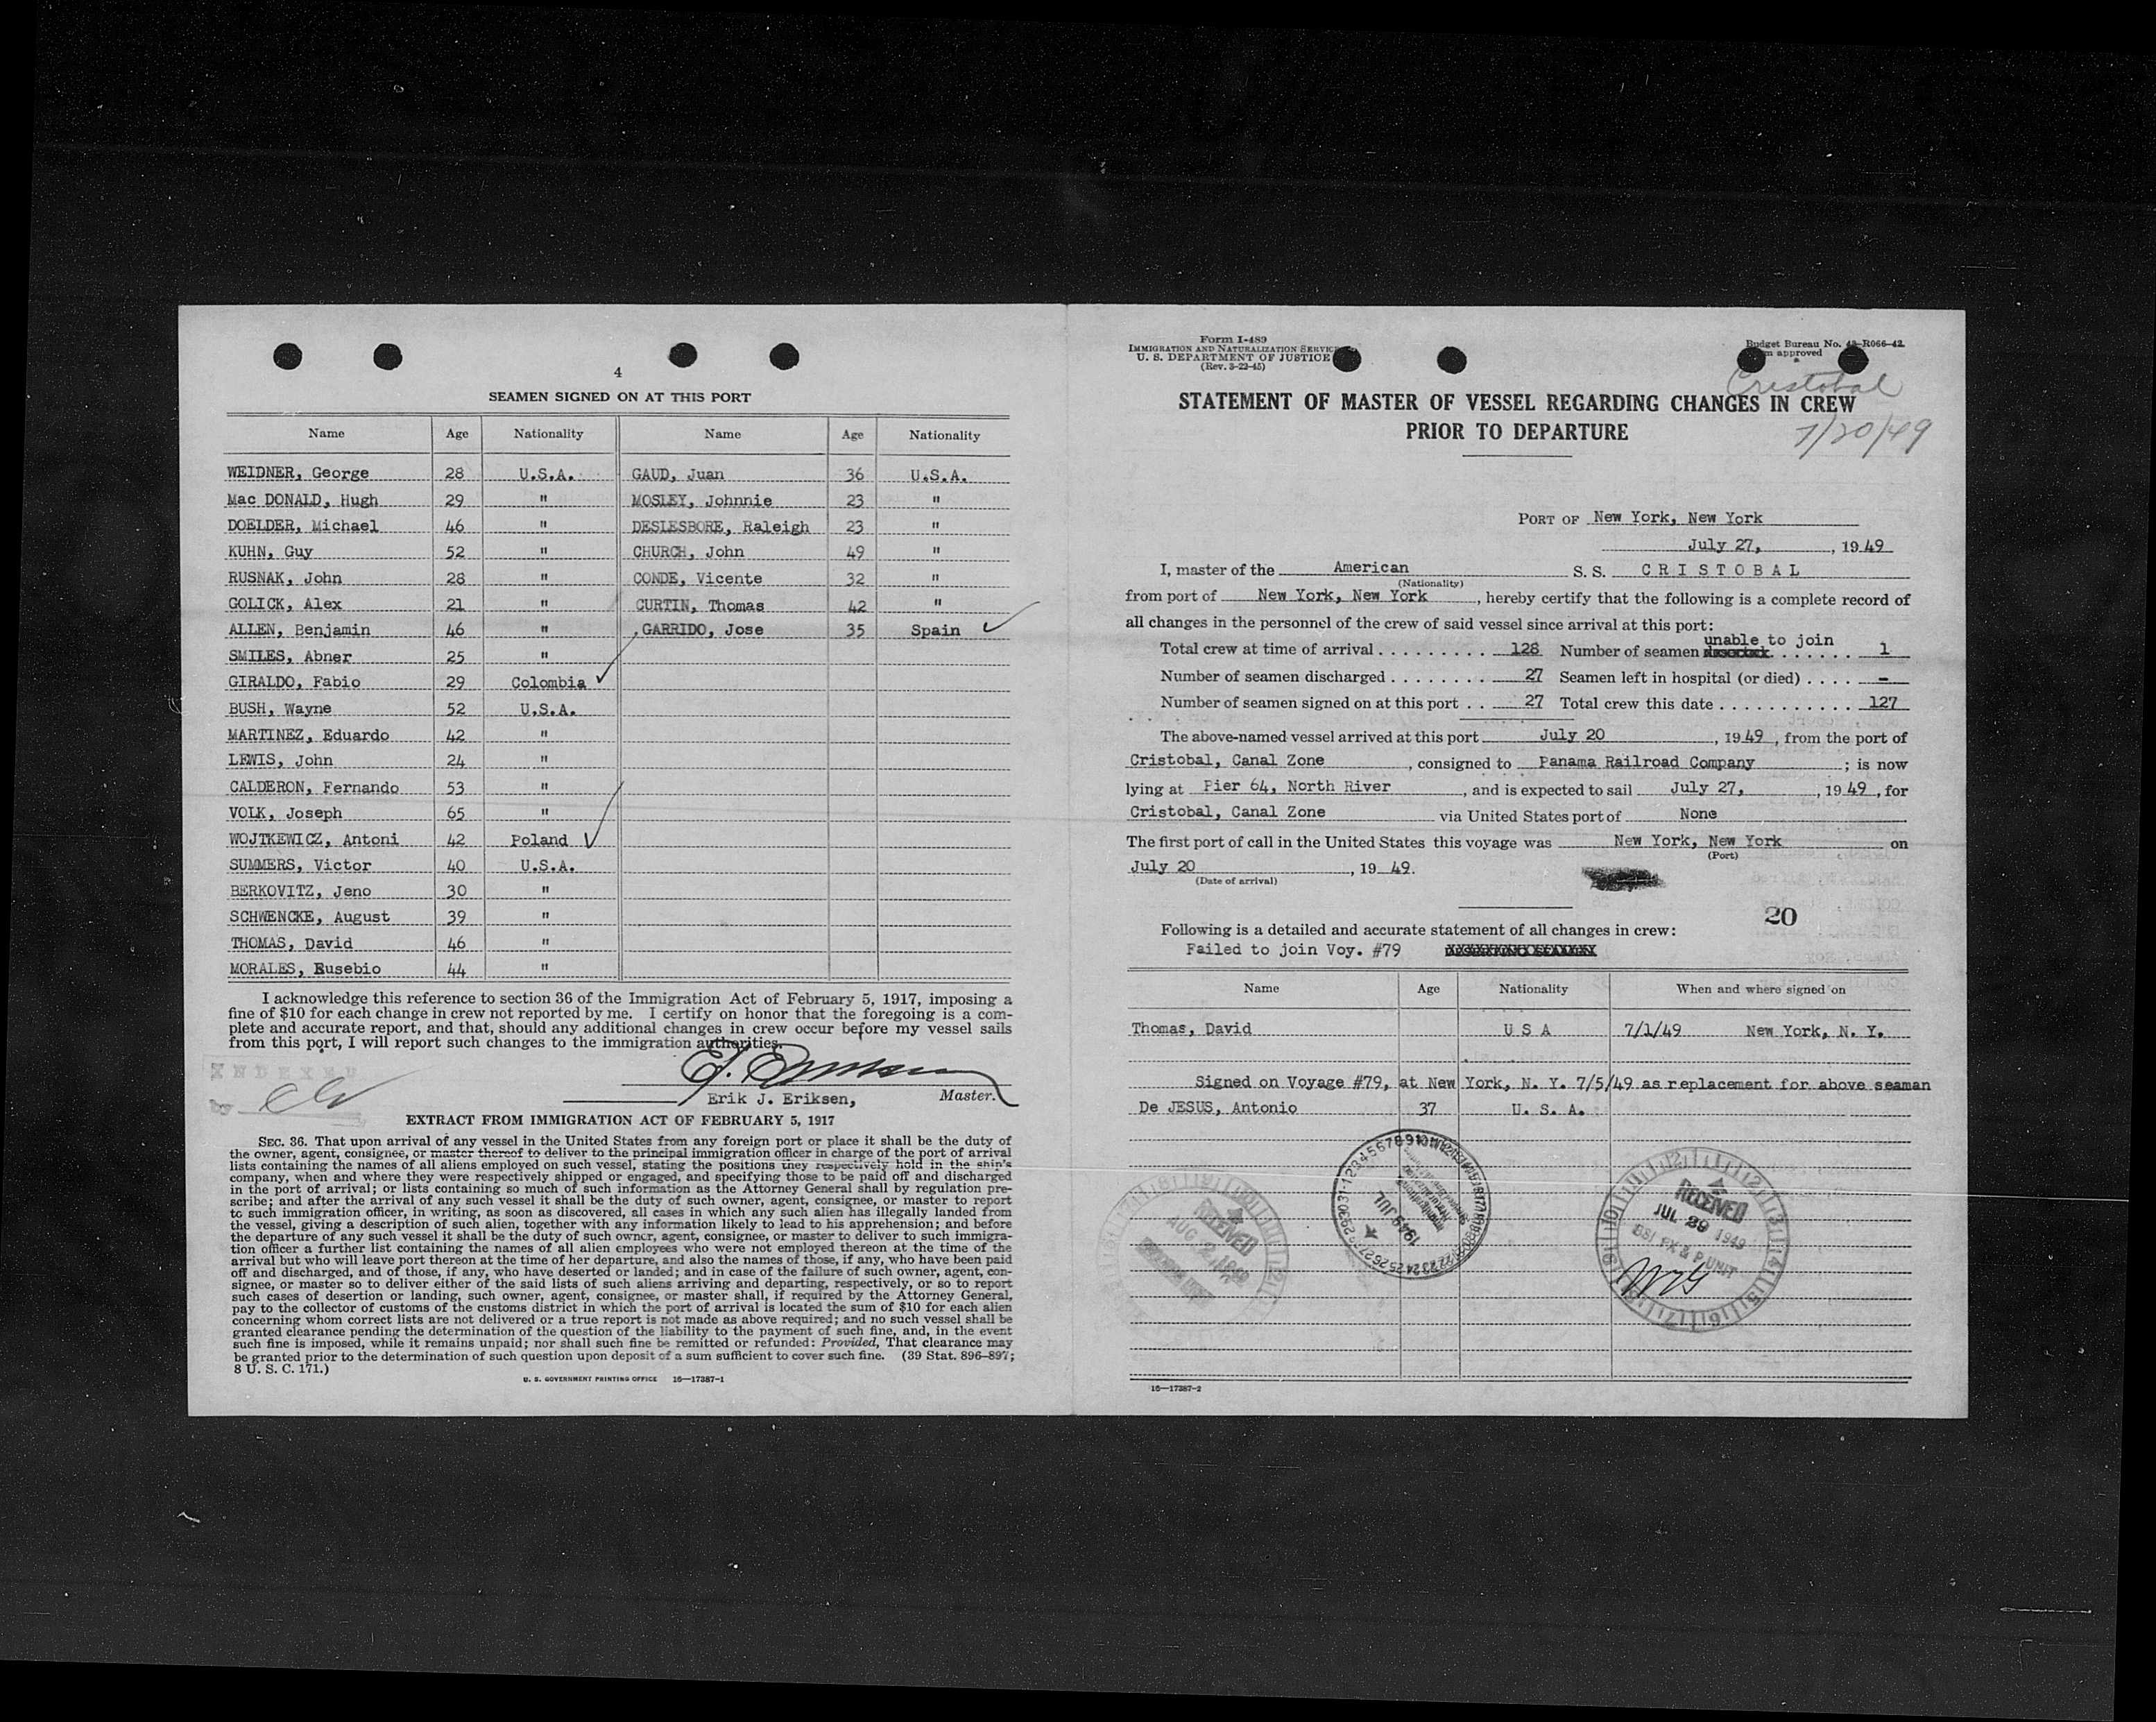 4
SEAMEN SIGNED ON AT THIS PORT
Name Age Nationality Name Age Nationality
WEIDNER, George 28 U.S.A. GAUD, Juan 36 U.S.A.
Mac DONALD, Hugh 29 " MOSLEY, Johnnie 23 "
DOELDER, Michael 46 " DESLESBORE, Raleigh 23 "
KUHN, Guy 52 " CHURCH, John 49 "
RUSNAK, John 28 " CONDE, Vicente 32 "
GOLICK, Alex 21 " CURTIN, Thomas 42 "
ALLEN, Benjamin 46 " GARRIDO, Jose 35 Spain
SMILES, Abner 25 "
GIRALDO, Fabio 29 Colombia
BUSH, Wayne 52 U.S.A.
MARTINEZ, Eduardo 42 "
LEWIS, John 24 "
CALDERON, Fernando 53 "
VOLK, Joseph 65 "
WOJTKEWICZ, Antoni 42 Poland
SUMMERS, Victor 40 U.S.A.
BERKOVITZ, Jeno 30 "
SCHWENCKE, August 39 "
THOMAS, David 46 "
MORALES, Eusebio 44 "
I acknowledge this reference to section 36 of the Immigration Act of February 5, 1917, imposing a
fine of $10 for each change in crew not reported by me. I certify on honor that the foregoing is a com-
plete and accurate report, and that, should any additional changes in crew occur before my vessel sails
from this port, I will report such changes to the immigration authorities.
INDEXED
E. J. Eriksen
Erik J. Eriksen, Master.
EXTRACT FROM IMMIGRATION ACT OF FEBRUARY 5, 1917
SEC. 36. That upon arrival of any vessel in the United States from any foreign port or place it shall be the duty of
the owner, agent, consignee, or master thereof to deliver to the principal immigration officer in charge of the port of arrival
lists containing the names of all aliens employed on such vessel, stating the positions they respectively hold in the ship's
company, when and where they were respectively shipped or engaged, and specifying those to be paid off and discharged
in the port of arrival; or lists containing so much of such information as the Attorney General shall by regulation pre-
scribe; and after the arrival of any such vessel it shall be the duty of such owner, agent, consignee, or master to report
to such immigration officer, in writing, as soon as discovered, all cases in which any such alien has illegally landed from
the vessel, giving a description of such alien, together with any information likely to lead to his apprehension; and before
the departure of any such vessel it shall be the duty of such owner, agent, consignee, or master to deliver to such immigra-
tion officer a further list containing the names of all alien employees who were not employed thereon at the time of the
arrival but who will leave port thereon at the time of her departure, and also the names of those, if any, who have been paid
off and discharged, and of those, if any, who have deserted or landed; and in case of the failure of such owner, agent, con-
signee, or master so to deliver either of the said lists of such aliens arriving and departing, respectively, or so to report
such cases of desertion or landing, such owner, agent, consignee, or master shall, if required by the Attorney General,
pay to the collector of customs of the customs district in which the port of arrival is located the sum of $10 for each alien
concerning whom correct lists are not delivered or a true report is not made as above required; and no such vessel shall be
granted clearance pending the determination of the question of the liability to the payment of such fine, and, in the event
such fine is imposed, while it remains unpaid; nor shall such fine be remitted or refunded: Provided, That clearance may
be granted prior to the determination of such question upon deposit of a sum sufficient to cover such fine. (39 Stat. 896-897;
8 U. S. C. 171.)
U. S. GOVERNMENT PRINTING OFFICE 16—17387-1
Form I-489
IMMIGRATION AND NATURALIZATION SERVICE
U. S. DEPARTMENT OF JUSTICE
(Rev. 3-22-45)
Budget Bureau No. 43-R066-42.
approved
Cristobal
7/20/49
STATEMENT OF MASTER OF VESSEL REGARDING CHANGES IN CREW
PRIOR TO DEPARTURE
PORT OF New York, New York
July 27, , 19 49
I, master of the American S. S. CRISTOBAL
(Nationality)
from port of New York, New York , hereby certify that the following is a complete record of
all changes in the personnel of the crew of said vessel since arrival at this port:
unable to join
Total crew at time of arrival . . . . . . . . . . 128 Number of seamen . . . . . . . 1
Number of seamen discharged . . . . . . . . 27 Seamen left in hospital (or died) . . . . -
Number of seamen signed on at this port . . 27 Total crew this date . . . . . . . . . . . 127
The above-named vessel arrived at this port July 20 , 19 49 , from the port of
Cristobal, Canal Zone , consigned to Panama Railroad Company ; is now
lying at Pier 64, North River , and is expected to sail July 27, , 19 49 , for
Cristobal, Canal Zone via United States port of None
The first port of call in the United States this voyage was New York, New York on
(Port)
July 20 , 19 49.
(Date of arrival)
20
Following is a detailed and accurate statement of all changes in crew:
Failed to join Voy. #79
Name Age Nationality When and where signed on
Thomas, David U S A 7/1/49 New York, N. Y.
Signed on Voyage #79, at New York, N. Y. 7/5/49 as replacement for above seaman
De JESUS, Antonio 37 U. S. A.
RECEIVED
AUG 2 1949
1949 JUL
RECEIVED
JUL 29 1949
BSI EX & P UNIT
16—17387-2